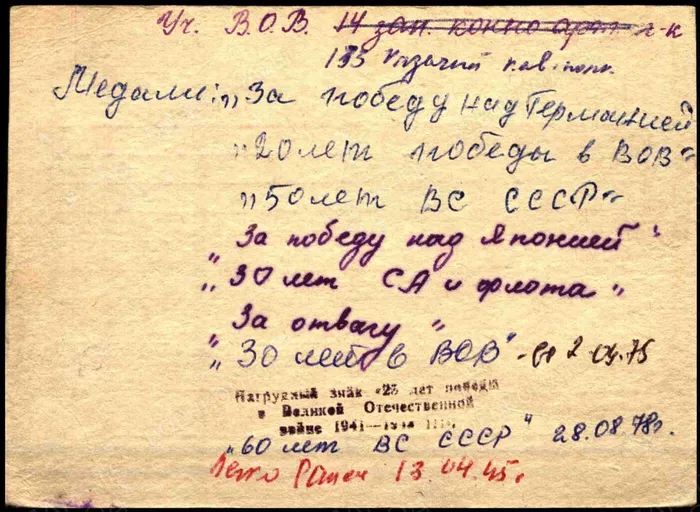 Уч. В.О.В. 14 зап. конно арт. п-к
Казачий кав. полк.
Медали: „За победу над Германией
„20 лет победы в ВОВ"
„50 лет ВС СССР"
„За победу над Японией"
„30 лет СА и флота"
„За отвагу"
„30 лет в ВОВ" - от 2.04.75
Нагрудный знак «25 лет победы
в Великой Отечественной
войне 1941—
„60 лет ВС СССР" 28.08.78г.
Легко Ранен 13.04.45г.